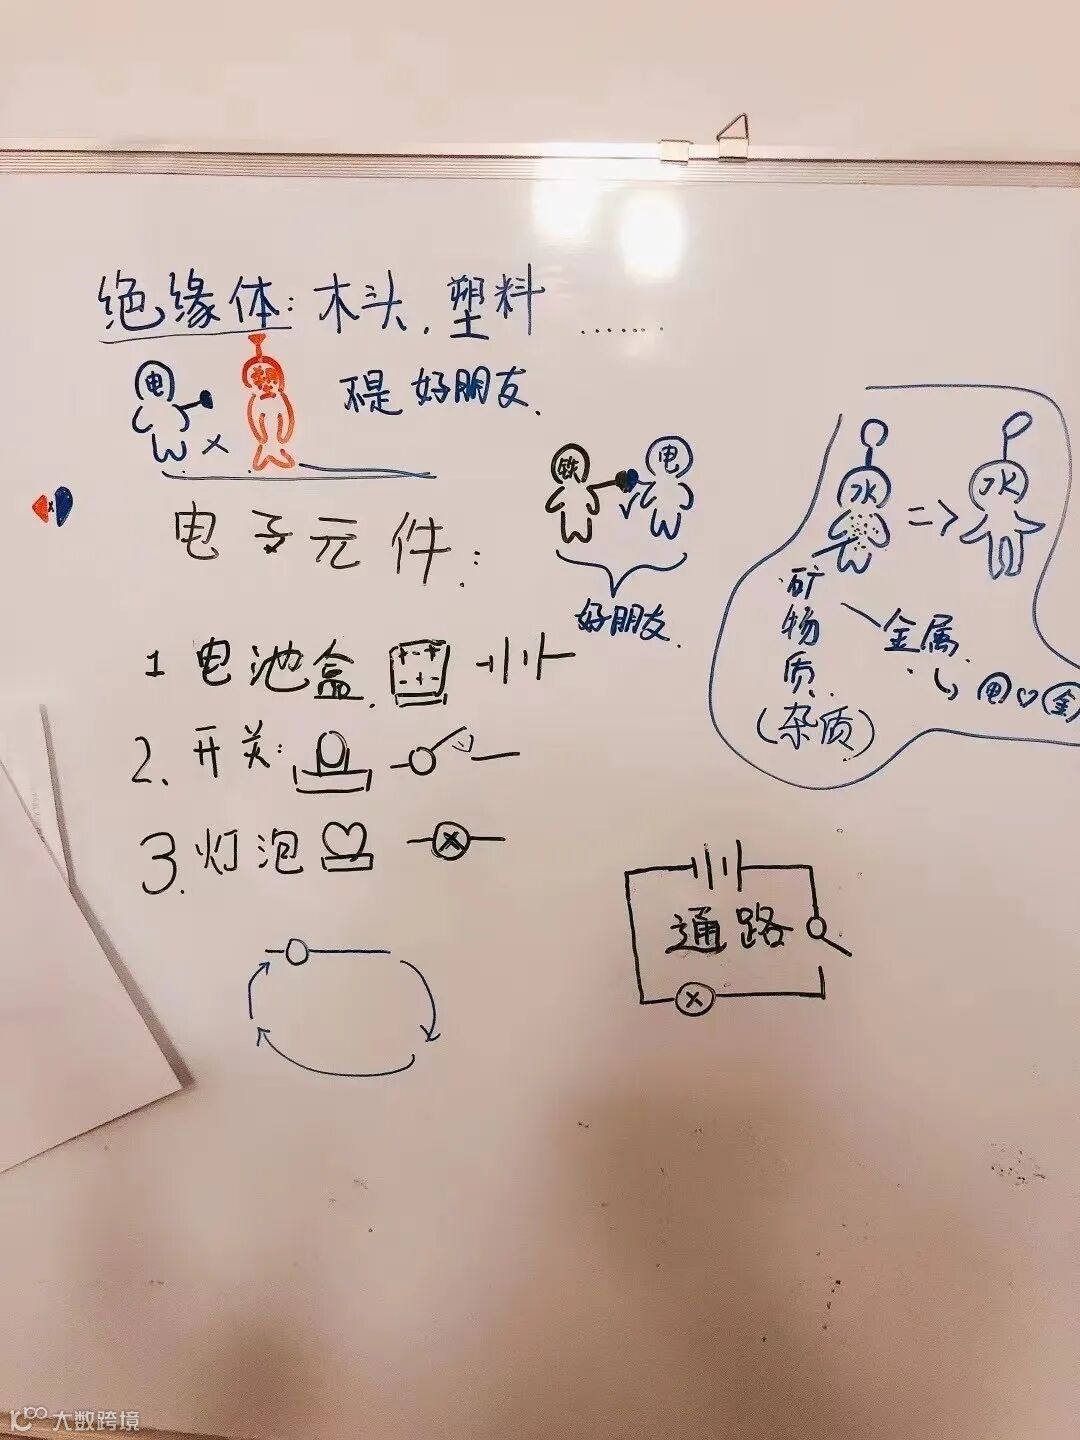 绝缘体：木头，塑料……
电 塑 不是好朋友.
铁 电
好朋友.
水 => 水
矿物质
(杂质)
金属.
电 ♡ 金
电子元件：
1 电池盒.
2. 开关：
3. 灯泡
通路
大数跨境